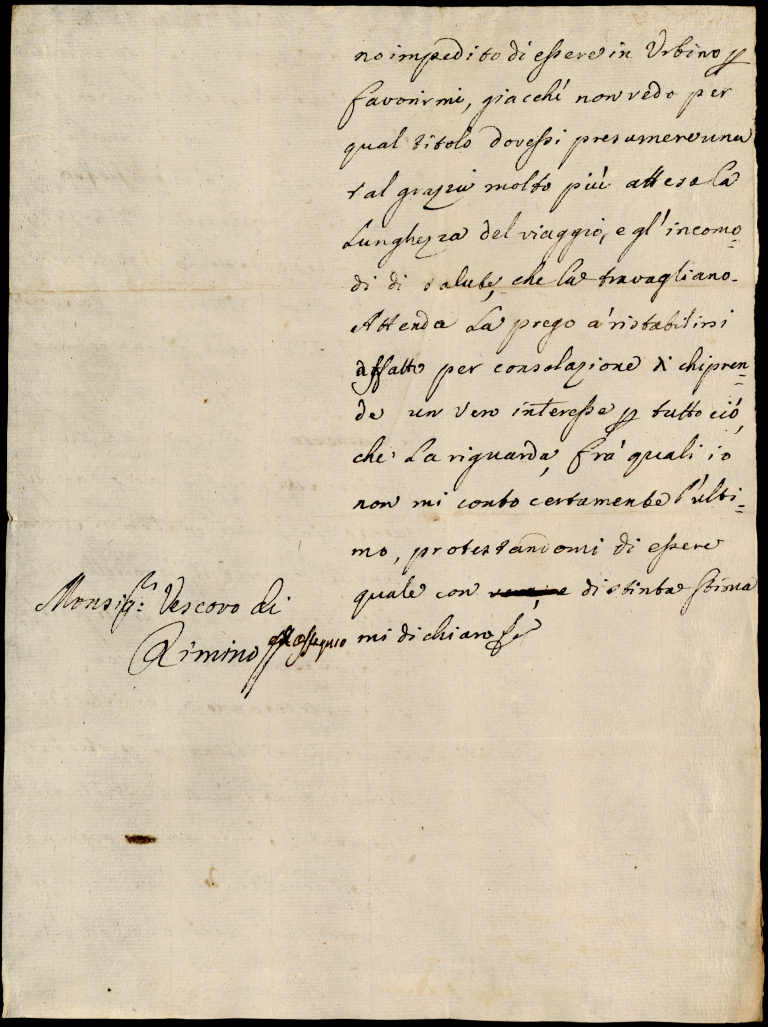 no impedito di essere in Urbino p
favorirmi, giacchè non vedo per
qual titolo dovessi presumere una
tal grazia molto più attesa la
Lunghezza del viaggio, e gl'incomo=
di di salute, che la travagliano.
Attenda La prego a' ristabilirsi
affatto per consolazione di chi pren=
de un vero interesse p tutto ciò,
che La riguarda, frà quali io
non mi conto certamente l'ulti=
mo, protestandomi di essere
quale con distinta stima
mi dichiaro
Monsig.r Vescovo di
Rimino
ossequio